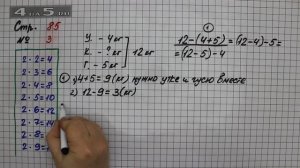 4 на 5.ру
Стр. 85
№ 3
2 · 2 = 4
2 · 3 = 6
2 · 4 = 8
2 · 5 = 10
2 · 6 = 12
2 · 7 = 14
2 · 8 =
2 · 9 =
У. - 4 кг
К. - ? кг
Г. - 5 кг
12 кг
1) 4+5=9(кг) нужно утке и гусю вместе
2) 12-9=3(кг)
12-(4+5)=(12-4)-5=
=(12-5)-4